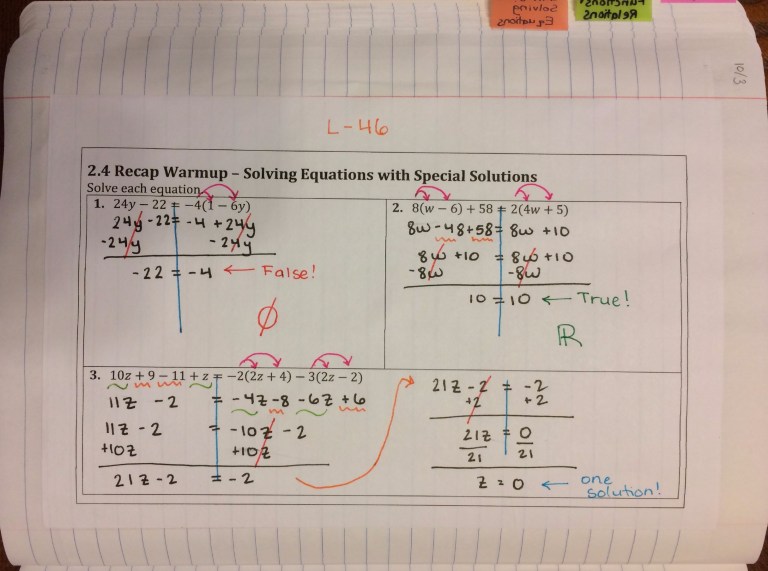 Solving
Equations
Functions
Relations
10/3
L-46
2.4 Recap Warmup – Solving Equations with Special Solutions
Solve each equation
1. 24y – 22 = –4(1 – 6y)
24y -22 = -4 + 24y
-24y - 24y
-22 = -4 ← False!
∅
2. 8(w – 6) + 58 = 2(4w + 5)
8w -48+58 = 8w +10
8w +10 = 8w +10
-8w -8w
10 = 10 ← True!
ℝ
3. 10z + 9 – 11 + z = –2(2z + 4) – 3(2z – 2)
11z - 2 = -4z -8 -6z +6
11z - 2 = -10z - 2
+10z +10z
21z - 2 = - 2
21z - 2 = -2
+2 +2
21z = 0
21 21
z = 0 ← one
solution!